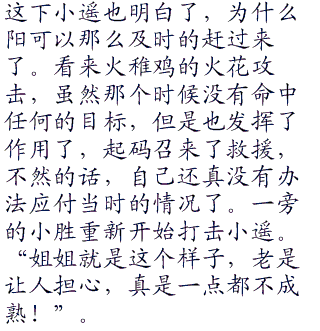 这下小遥也明白了，为什么
阳可以那么及时的赶过来
了。看来火稚鸡的火花攻
击，虽然那个时候没有命中
任何的目标，但是也发挥了
作用了，起码召来了救援，
不然的话，自己还真没有办
法应付当时的情况了。一旁
的小胜重新开始打击小遥。
“姐姐就是这个样子，老是
让人担心，真是一点都不成
熟！”。